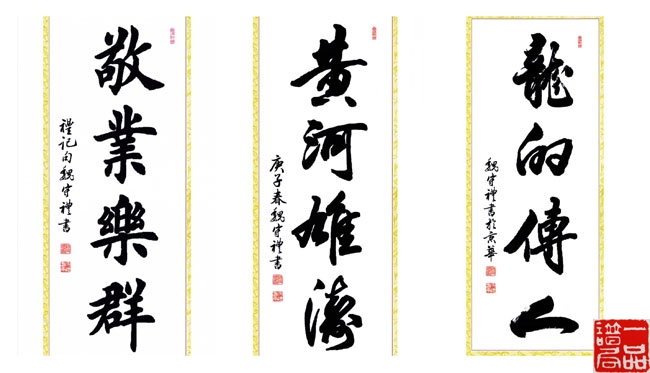 敬業樂群
禮記句魏守禮書
黄河雄濤
庚子春魏守禮書
龍的傳人
魏守禮書於京華
一品